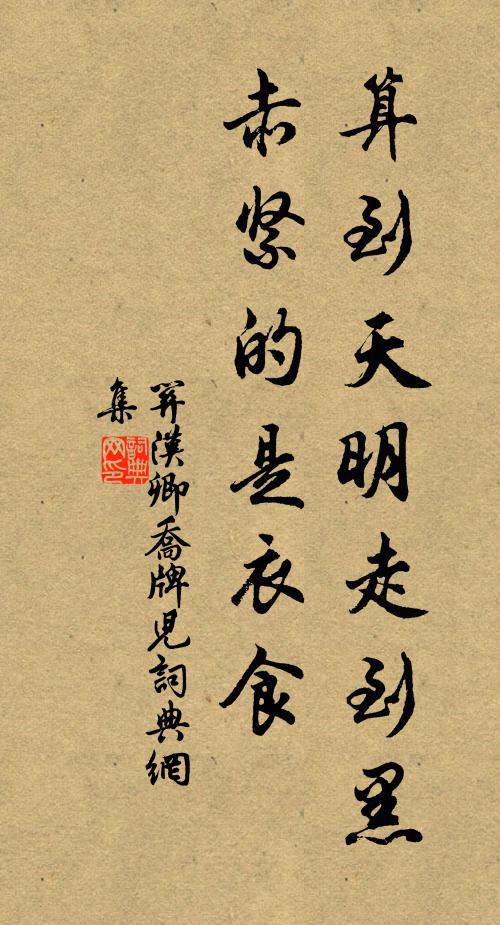 算到天明走到黑
赤緊的是衣食
關漢卿喬牌児詞典網
集
詞典
网印